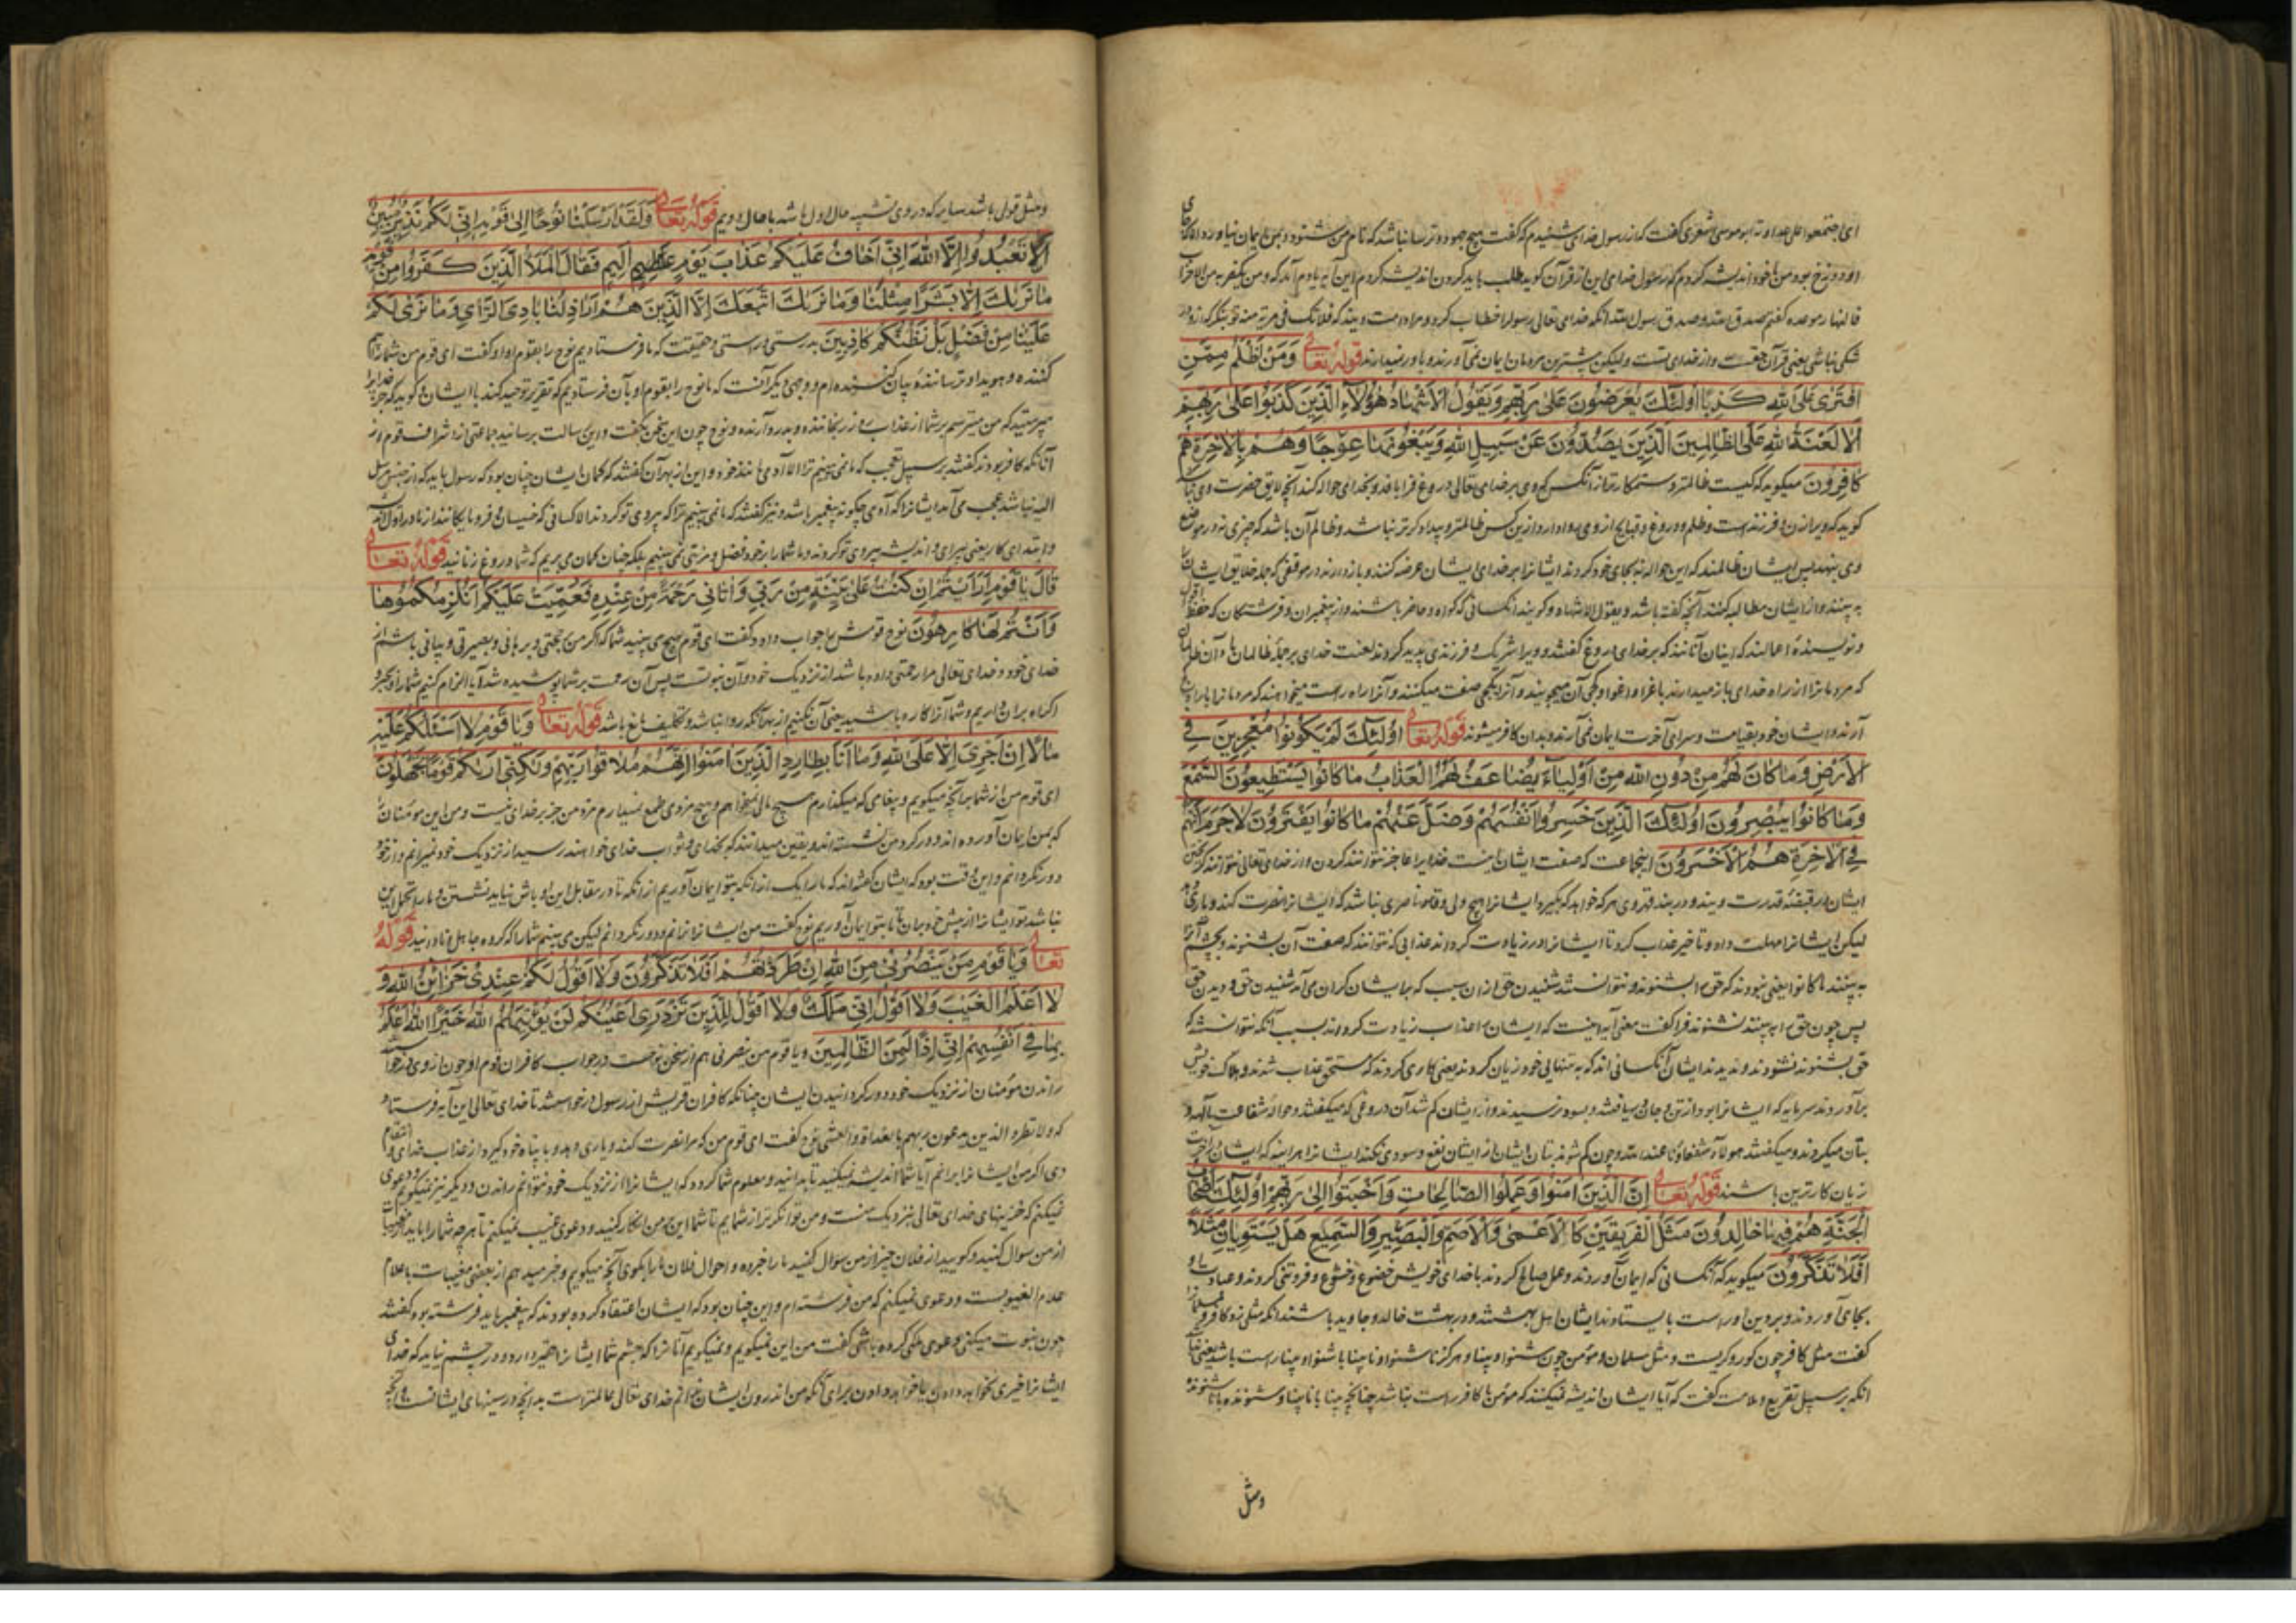 ابو موسی اشعری گفت که از رسول خدای شنیدم که گفت هیچ جهود و ترسا نباشد که نام من بشنود و بمن ایمان نیاورد الا که جای
او دوزخ بود من با خود اندیشه کردم که رسول خدای این از قرآن گوید طلب باید کردن اندیشه کردم این آیه یادم آمد که و من یکفر به من الاحزاب
فالنار موعده گفتم صدق الله و صدق رسول الله
شکی نباشی یعنی قرآن حقست و از خدای تست ولیکن بیشترین مردمان ایمان نمی آورند و باور نمیدارند قوله تعالی وَمَنْ اَظْلَمُ مِمَّنِ
افْتَرٰی عَلَی اللهِ کَذِبًا اُولٰئِکَ یُعْرَضُونَ عَلٰی رَبِّهِمْ وَیَقُولُ الْاَشْهَادُ هٰؤُلَاءِ الَّذِینَ کَذَبُوا عَلٰی رَبِّهِمْ
اَلَا لَعْنَةُ اللهِ عَلَی الظَّالِمِینَ الَّذِینَ یَصُدُّونَ عَنْ سَبِیلِ اللهِ وَیَبْغُونَهَا عِوَجًا وَهُمْ بِالْاٰخِرَةِ هُمْ
کَافِرُونَ میگوید که کیست ظالمتر و ستمکارتر از آنکس که وی بر خدای تعالی دروغ فرا بافد و بخدای حواله کند آنچه لایق حضرت وی نباشد
گوید که ویرا زن و فرزندست و ظلم و دروغ و قبایح از وی روا دارد ازین کس ظالمتر و بیدادگرتر نباشد و ظالم آن باشد که چیزی نه در موضع
وی بنهد پس ایشان ظالمند که این حواله نه بجای خود کردند ایشانرا بر خدای ایشان عرضه کنند و باز دارند در موقفی که جمله خلایق ایشانرا
به بینند و از ایشان مطالبه کنند آنچه گفته باشد و یقول الاشهاد و گویند آنکسانی که گواه و حاضر باشند از پیغمبران و فرشتگان که حفظه
و نویسنده اعمالند که اینان آنانند که بر خدای دروغ گفتند و ویرا شریک و فرزندی پدید کردند لعنت خدای بر جمله ظالمان باد آن ظالمان
که مردمانرا از راه خدای باز میدارند باغرا و اغوا و کجی آن میجویند و آنرا بکجی صفت میکنند و آنرا راه راست میخواهند که مردمانرا
آرند و ایشان خود بقیامت و سرای آخرت ایمان نمی آرند و بدان کافر میشوند قوله تعالی اُولٰئِکَ لَمْ یَکُونُوا مُعْجِزِینَ فِی
الْاَرْضِ وَمَا کَانَ لَهُمْ مِنْ دُونِ اللهِ مِنْ اَوْلِیَاءَ یُضَاعَفُ لَهُمُ الْعَذَابُ مَا کَانُوا یَسْتَطِیعُونَ السَّمْعَ
وَمَا کَانُوا یُبْصِرُونَ اُولٰئِکَ الَّذِینَ خَسِرُوا اَنْفُسَهُمْ وَضَلَّ عَنْهُمْ مَا کَانُوا یَفْتَرُونَ لَا جَرَمَ اَنَّهُمْ
فِی الْاٰخِرَةِ هُمُ الْاَخْسَرُونَ اینجماعت که صفت ایشان اینست خدایرا عاجز نتوانند کردن و از خدای تعالی نتوانند گریختن
ایشان در قبضه قدرت ویند و در بند قدر وی هر گه خواهد که بگیرد ایشانرا هیچ ولی و ناصری نباشد که ایشانرا نصرت کند و یاری دهد
لیکن ایشانرا مهلت داد و تاخیر عذاب کرد تا ایشانرا در زیادت گرداند عذابی که نتوانند که صفت آن بشنوند و بچشم آنرا
به بینند ما کانوا یعنی نبودند که حق را بشنوند و نتوانستند شنیدن حق از آن سبب که بر ایشان گران می آمد شنیدن حق و دیدن حق
پس چون حق را به بینند نشنوند فرا گفت معنی آیه اینست که ایشان را عذاب زیادت کردند بسبب آنکه نتوانستند که
حق بشنوند نشنودند و ندیدند ایشان آنکسانی اند که به تنهای خود زیان کردند یعنی کاری کردند که مستحق عذاب شدند و هلاک خویش
بر آوردند سرمایه که ایشانرا بود از تن و جان و بسود نرسیدند و از ایشان گم شد آن دروغی که میگفتند و حواله شفاعت بآلهه و
بتان میکردند و میگفتند هولاء شفعاؤنا عند الله و چون گم شوند بتان ایشان از ایشان نفع و سودی نکند ایشانرا هر آینه که ایشان در آخرت
زیان کارترین باشند قوله تعالی اِنَّ الَّذِینَ اٰمَنُوا وَعَمِلُوا الصَّالِحَاتِ وَاَخْبَتُوا اِلٰی رَبِّهِمْ اُولٰئِکَ اَصْحَابُ
الْجَنَّةِ هُمْ فِیهَا خَالِدُونَ مَثَلُ الْفَرِیقَیْنِ کَالْاَعْمٰی وَالْاَصَمِّ وَالْبَصِیرِ وَالسَّمِیعِ هَلْ یَسْتَوِیَانِ مَثَلًا
اَفَلَا تَذَکَّرُونَ میگوید که آنکسانی که ایمان آوردند و عمل صالح کردند با خدای خویش خضوع و خشوع و فروتنی کردند و عبادت او
بجای آوردند و بر دین او راست بایستادند ایشان اهل بهشتند و در بهشت خالد و جاوید باشند آنگه مثلی زد کافر و مسلمانرا
گفت مثل کافر چون کور و کرست و مثل مسلمان و مؤمن چون شنوا و بینا و هرگز ناشنوا و نابینا با شنوا و بینا راست باشد یعنی نباشد
آنگه بر سبیل تقریع و ملامت گفت که آیا ایشان اندیشه نمیکنند که مؤمن با کافر راست نباشد چنانچه بینا با نابینا و شنونده با ناشنونده
ومثل
ومثل قولی باشد سایر که در وی تشبیه حال اول باشد با حال دویم قوله تعالی وَلَقَدْ اَرْسَلْنَا نُوحًا اِلٰی قَوْمِهِ اِنِّی لَکُمْ نَذِیرٌ مُبِینٌ
اَنْ لَا تَعْبُدُوا اِلَّا اللهَ اِنِّی اَخَافُ عَلَیْکُمْ عَذَابَ یَوْمٍ عَظِیمٍ اَلِیمٍ فَقَالَ الْمَلَاُ الَّذِینَ کَفَرُوا مِنْ قَوْمِهِ
مَا نَرٰیکَ اِلَّا بَشَرًا مِثْلَنَا وَمَا نَرٰیکَ اتَّبَعَکَ اِلَّا الَّذِینَ هُمْ اَرَاذِلُنَا بَادِیَ الرَّاْیِ وَمَا نَرٰی لَکُمْ
عَلَیْنَا مِنْ فَضْلٍ بَلْ نَظُنُّکُمْ کَاذِبِینَ بدرستی و راستی و حقیقت که ما فرستادیم نوح را بقوم او او گفت ای قوم من شما را
کننده و هویدا و ترساننده بیان کننده ام و وجهی دیگر آنست که ما نوح را بقوم او بآن فرستادیم که تقریر توحید کند با ایشان و گوید که جز خدایرا
میپرستید که من میترسم بر شما از عذاب روز رنجاننده و بدرد آرنده و نوح چون این سخن بگفت و این رسالت برسانید جماعتی از اشراف قوم او از
آنانکه کافر بودند گفتند بر سبیل تعجب که ما نمی بینیم ترا الا آدمی مانند خود و این از بهر آن گفتند که گمان ایشان چنان بود که رسول باید که از جنس مرسل
الیه نباشد عجب می آمد ایشانرا که آدمی چگونه پیغمبر باشد و نیز گفتند که ما نمی بینیم ترا که پیروی تو کردند الا کسانی که خسیسان و فرومایگانند از ما در اول
و ابتدای کار یعنی بی رای و اندیشه پیروی تو کردند و ما شما را بر خود فضل و مزیتی نمی بینیم بلکه چنان گمان می بریم که شما دروغ زنانید قوله تعالی
قَالَ یَا قَوْمِ اَرَاَیْتُمْ اِنْ کُنْتُ عَلٰی بَیِّنَةٍ مِنْ رَبِّی وَاٰتَانِی رَحْمَةً مِنْ عِنْدِهِ فَعُمِّیَتْ عَلَیْکُمْ اَنُلْزِمُکُمُوهَا
وَاَنْتُمْ لَهَا کَارِهُونَ نوح قومش را جواب داد و گفت ای قوم هیچ می بینید شما که اگر من بر حجتی و برهانی و بصیرتی و بیانی باشم از
خدای خود و خدای تعالی مرا رحمتی داده باشد از نزدیک خود و آن نبوتست پس آن رحمت بر شما پوشیده شد آیا الزام کنیم شما را و بجبر و
اکراه بر آن داریم و شما آنرا کاره باشید یعنی آن نکنیم از بهر آنکه روا نباشد و تکلیف مانع باشد قوله تعالی وَیَا قَوْمِ لَا اَسْئَلُکُمْ عَلَیْهِ
مَالًا اِنْ اَجْرِیَ اِلَّا عَلَی اللهِ وَمَا اَنَا بِطَارِدِ الَّذِینَ اٰمَنُوا اِنَّهُمْ مُلَاقُوا رَبِّهِمْ وَلٰکِنِّی اَرٰیکُمْ قَوْمًا تَجْهَلُونَ
ای قوم من از شما بر آنچه میگویم و پیغامی که میگذارم هیچ مالی نمیخواهم و هیچ مزدی طمع نمیدارم مزد من جز بر خدای نیست و من این مؤمنانرا
که بمن ایمان آورده اند دور کردمن نشسته اند و یقین میدانند که بخدای و ثواب خدای خواهند رسید از نزدیک خود نمیرانم و از خود
دور نگردانم و این وقت بود که ایشان گفته اند که ما را یک از آنکه بتو ایمان آوریم از آنکه ما در مقابل این اوباش نیاید نشستن و ما را تحمل این
نباشد تو ایشانرا از پیش خود بران تا ما بتو ایمان آوریم نوح گفت من ایشانرا نرانم و دور نگردانم لیکن می بینم شما را که گروه جاهل و نادانید قوله
تعالی وَیَا قَوْمِ مَنْ یَنْصُرُنِی مِنَ اللهِ اِنْ طَرَدْتُهُمْ اَفَلَا تَذَکَّرُونَ وَلَا اَقُولُ لَکُمْ عِنْدِی خَزَائِنُ اللهِ وَ
لَا اَعْلَمُ الْغَیْبَ وَلَا اَقُولُ اِنِّی مَلَکٌ وَلَا اَقُولُ لِلَّذِینَ تَزْدَرِی اَعْیُنُکُمْ لَنْ یُؤْتِیَهُمُ اللهُ خَیْرًا اللهُ اَعْلَمُ
بِمَا فِی اَنْفُسِهِمْ اِنِّی اِذًا لَمِنَ الظَّالِمِینَ و یا قوم من ینصرنی هم از سخن نوحست در جواب کافران قوم او چون از وی درخواستند
راندن مؤمنان از نزدیک خود و دور گردانیدن ایشان چنانکه کافران قریش از رسول درخواستند تا خدای تعالی این آیه فرستاد
که ولا تطرد الذین یدعون ربهم بالغداة والعشی نوح گفت ای قوم من که مرا نصرت کند و یاری دهد و با پناه خود گیرد از عذاب خدای و انتقام
وی اگر من ایشانرا برانم آیا شما اندیشه نمیکنید تا بدانید و معلوم شما گردد که ایشانرا از نزدیک خود نتوانم راندن و دیگر نیز نمیگویم و دعوی
نمیکنم که خزینهای خدای تعالی بنزدیک منست و من توانگرتر از شمایم تا شما این از من انکار کنید و دعوی غیب نمیکنم تا هر چه شما را باید
از من سوال کنید و گویید از فلان چیز از من سوال کنید ما را خبر ده و احوال فلان ما را بگوی آنچه میگویم و خبر میدهم از بعضی مغیبات باعلام
علام الغیوبست و دعوی نمیکنم که من فرشته ام و این چنان بود که ایشان اعتقاد کرده بودند که پیغمبر باید فرشته بود گفتند
چون نبوت میکنی دعوی ملکی کرده باشی گفت من این نمیگویم و نمیگویم آنانرا که چشم شما ایشانرا حقیر دارد و در چشم نیاید که خدای
ایشانرا خیری نخواهد دادن یا خواهد دادن برای آنکه من اندرون ایشان ندانم خدای تعالی عالمترست بدانچه در سینهای ایشانست